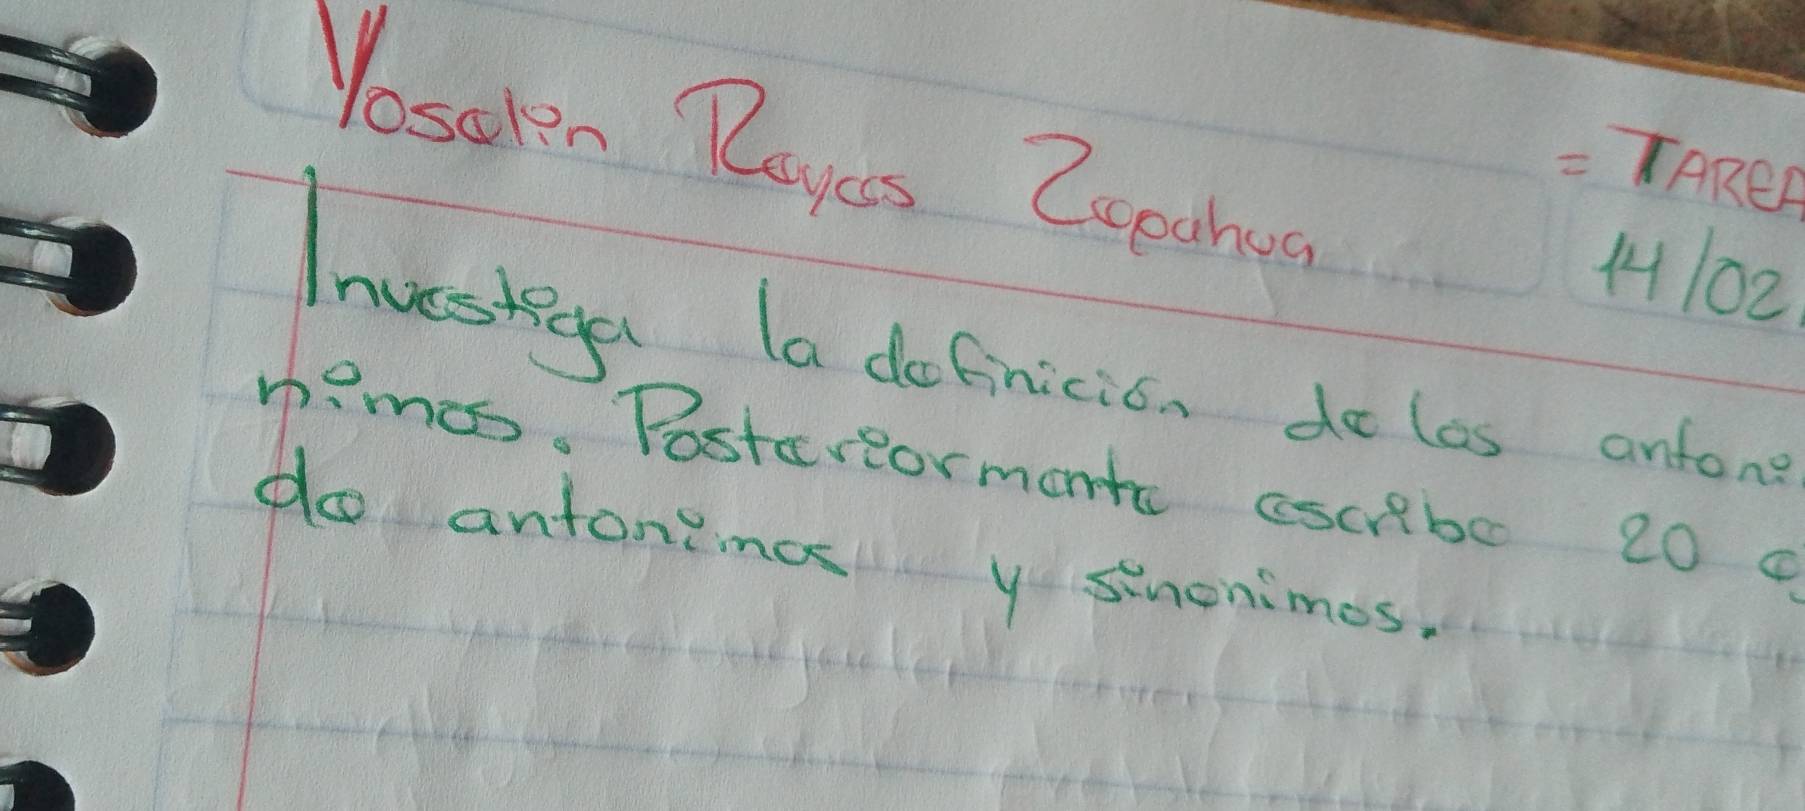 Yoselin Reyes Zopahua
= TAREA
14/02
Investiga la definición de los antoni
nimos. Posteriormente escribe 20 ej
de antonimos y sinonimos.